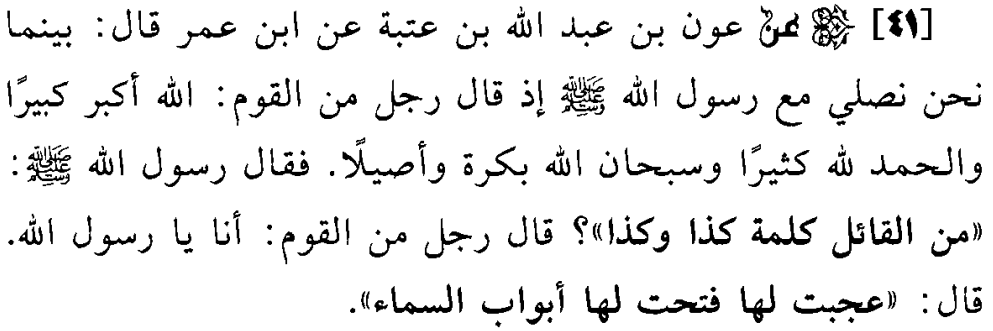 [٤١] عن عون بن عبد الله بن عتبة عن ابن عمر قال: بينما
نحن نصلي مع رسول الله ﷺ إذ قال رجل من القوم: الله أكبر كبيرًا
والحمد لله كثيرًا وسبحان الله بكرة وأصيلًا. فقال رسول الله ﷺ:
«من القائل كلمة كذا وكذا»؟ قال رجل من القوم: أنا يا رسول الله.
قال: «عجبت لها فتحت لها أبواب السماء».